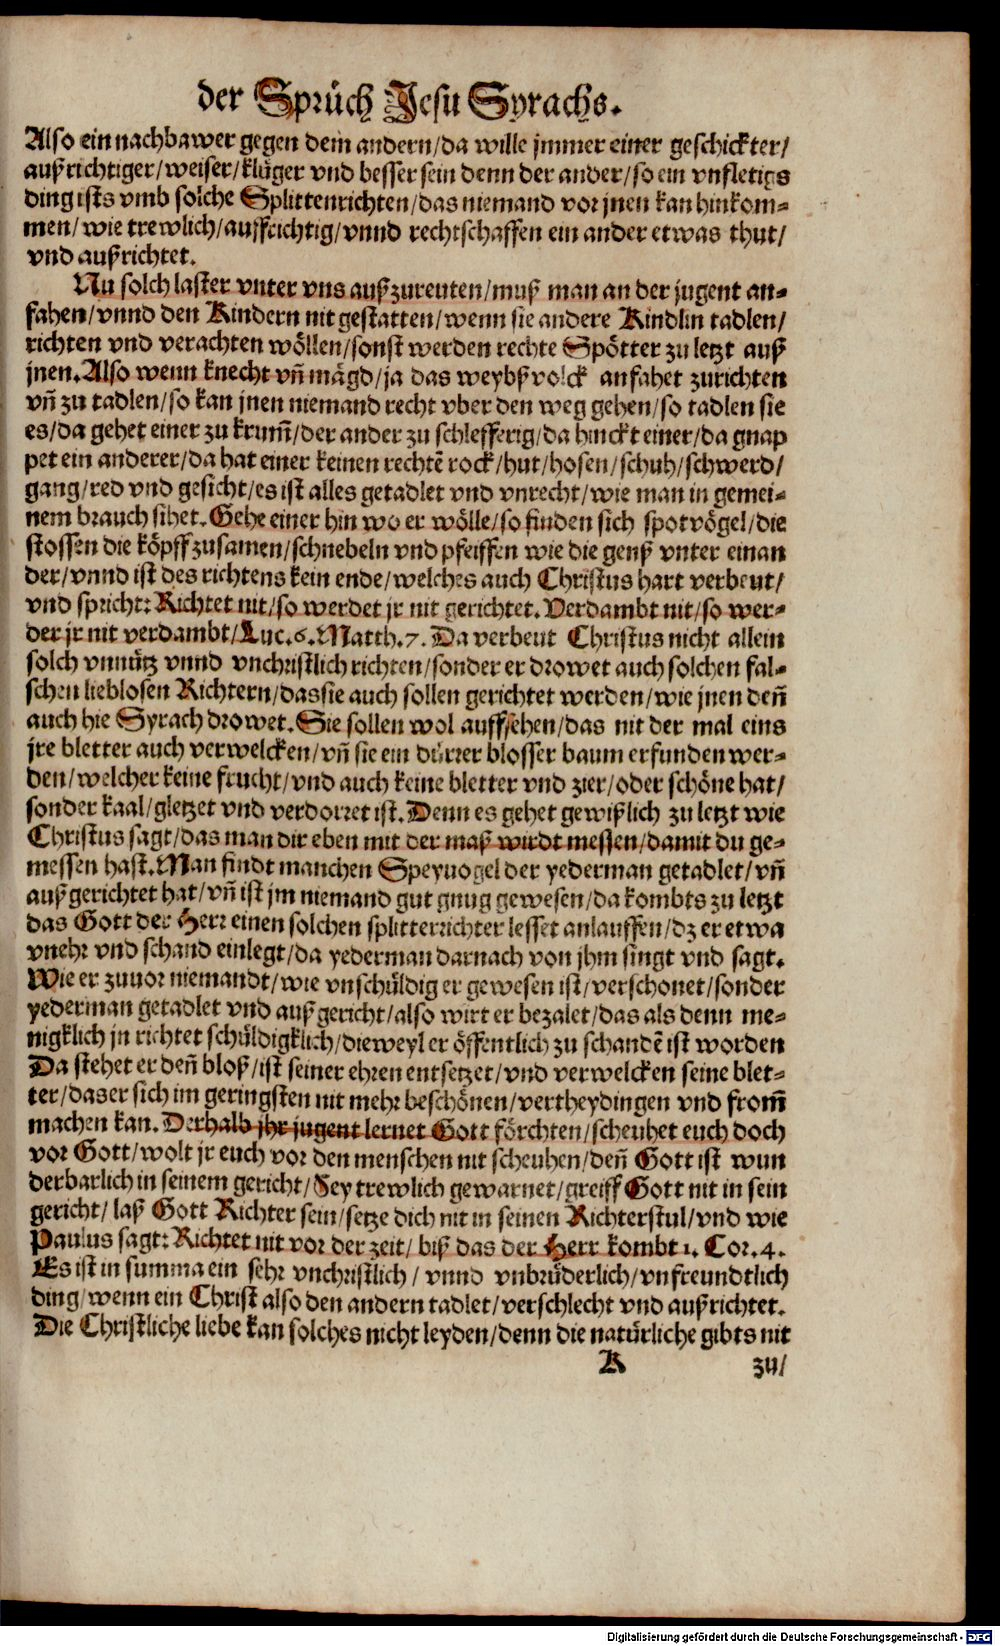 der Sprüch Jesu Syrachs.
Also ein nachbawer gegen dem andern/da wille jmmer einer geschickter/
außrichtiger/weiser/klüger vnd besser sein denn der ander/so ein vnfletigs
ding ists vmb solche Splittenrichten/das niemand vor jnen kan hinkom⸗
men/wie trewlich/auffrichtig/vnnd rechtschaffen ein ander etwas thut/
vnd außrichtet.
Nu solch laster vnter vns außzureuten/muß man an der jugent an⸗
fahen/vnnd den Kindern nit gestatten/wenn sie andere Kindlin tadlen/
richten vnd verachten wöllen/sonst werden rechte Spötter zu letzt auß
jnen.Also wenn knecht vñ mägd/ja das weybßvolck anfahet zurichten
vñ zu tadlen/so kan jnen niemand recht vber den weg gehen/so tadlen sie
es/da gehet einer zu krum̃/der ander zu schlefferig/da hinckt einer/da gnap
pet ein anderer/da hat einer keinen rechtẽ rock/hut/hosen/schuh/schwerd/
gang/red vnd gesicht/es ist alles getadlet vnd vnrecht/wie man in gemei⸗
nem brauch sihet.Gehe einer hin wo er wölle/so finden sich spotvögel/die
stossen die köpff zusamen/schnebeln vnd pfeiffen wie die genß vnter einan
der/vnnd ist des richtens kein ende/welches auch Christus hart verbeut/
vnd spricht: Richtet nit/so werdet jr nit gerichtet. Verdambt nit/so wer⸗
der jr nit verdambt/Luc.6.Matth.7. Da verbeut Christus nicht allein
solch vnnütz vnnd vnchristlich richten/sonder er drowet auch solchen fal⸗
schen lieblosen Richtern/das sie auch sollen gerichtet werden/wie jnen deñ
auch hie Syrach drowet.Sie sollen wol auffsehen/das nit der mal eins
jre bletter auch verwelcken/vñ sie ein dürrer blosser baum erfunden wer⸗
den/welcher keine frucht/vnd auch keine bletter vnd zier/oder schöne hat/
sonder kaal/gletzet vnd verdorret ist.Denn es gehet gewißlich zu letzt wie
Christus sagt/das man dir eben mit der maß wirdt messen/damit du ge⸗
messen hast.Man findt manchen Speyuogel der yederman getadlet/vñ
außgerichtet hat/vñ ist jm niemand gut gnug gewesen/da kombts zu letzt
das Gott der Herr einen solchen splitterrichter lesset anlauffen/dz er etwa
vnehr vnd schand einlegt/da yederman darnach von jhm singt vnd sagt.
Wie er zuuor niemandt/wie vnschüldig er gewesen ist/verschonet/sonder
yederman getadlet vnd außgericht/also wirt er bezalet/das als denn me⸗
nigklich jn richtet schüldigklich/dieweyl er öffentlich zu schandẽ ist worden
Da stehet er deñ bloß/ist seiner ehren entsetzet/vnd verwelcken seine blet⸗
ter/das er sich im geringsten nit mehr beschönen/vertheydingen vnd from̃
machen kan. Derhalb jhr jugent lernet Gott förchten/scheuhet euch doch
vor Gott/wolt jr euch vor den menschen nit scheuhen/deñ Gott ist wun
derbarlich in seinem gericht/Sey trewlich gewarnet/greiff Gott nit in sein
gericht/laß Gott Richter sein/setze dich nit in seinen Richterstul/vnd wie
Paulus sagt: Richtet nit vor der zeit/biß das der Herr kombt 1. Cor.4.
Es ist in summa ein sehr vnchristlich/vnnd vnbrüderlich/vnfreundtlich
ding/wenn ein Christ also den andern tadlet/verschlecht vnd außrichtet.
Die Christliche liebe kan solches nicht leyden/denn die natürliche gibts nit
K zu/
Digitalisierung gefördert durch die Deutsche Forschungsgemeinschaft - DFG